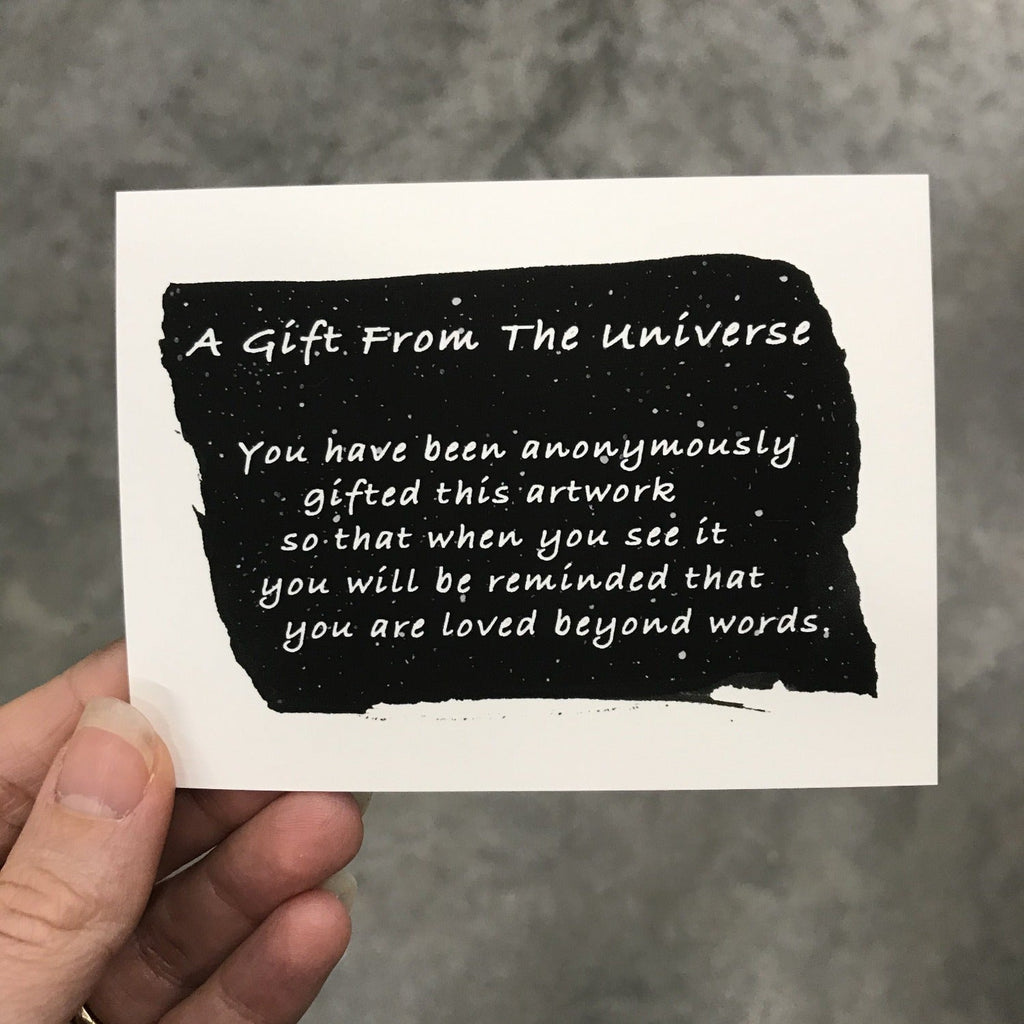 A Gift From The Universe
You have been anonymously
gifted this artwork
so that when you see it
you will be reminded that
you are loved beyond words.